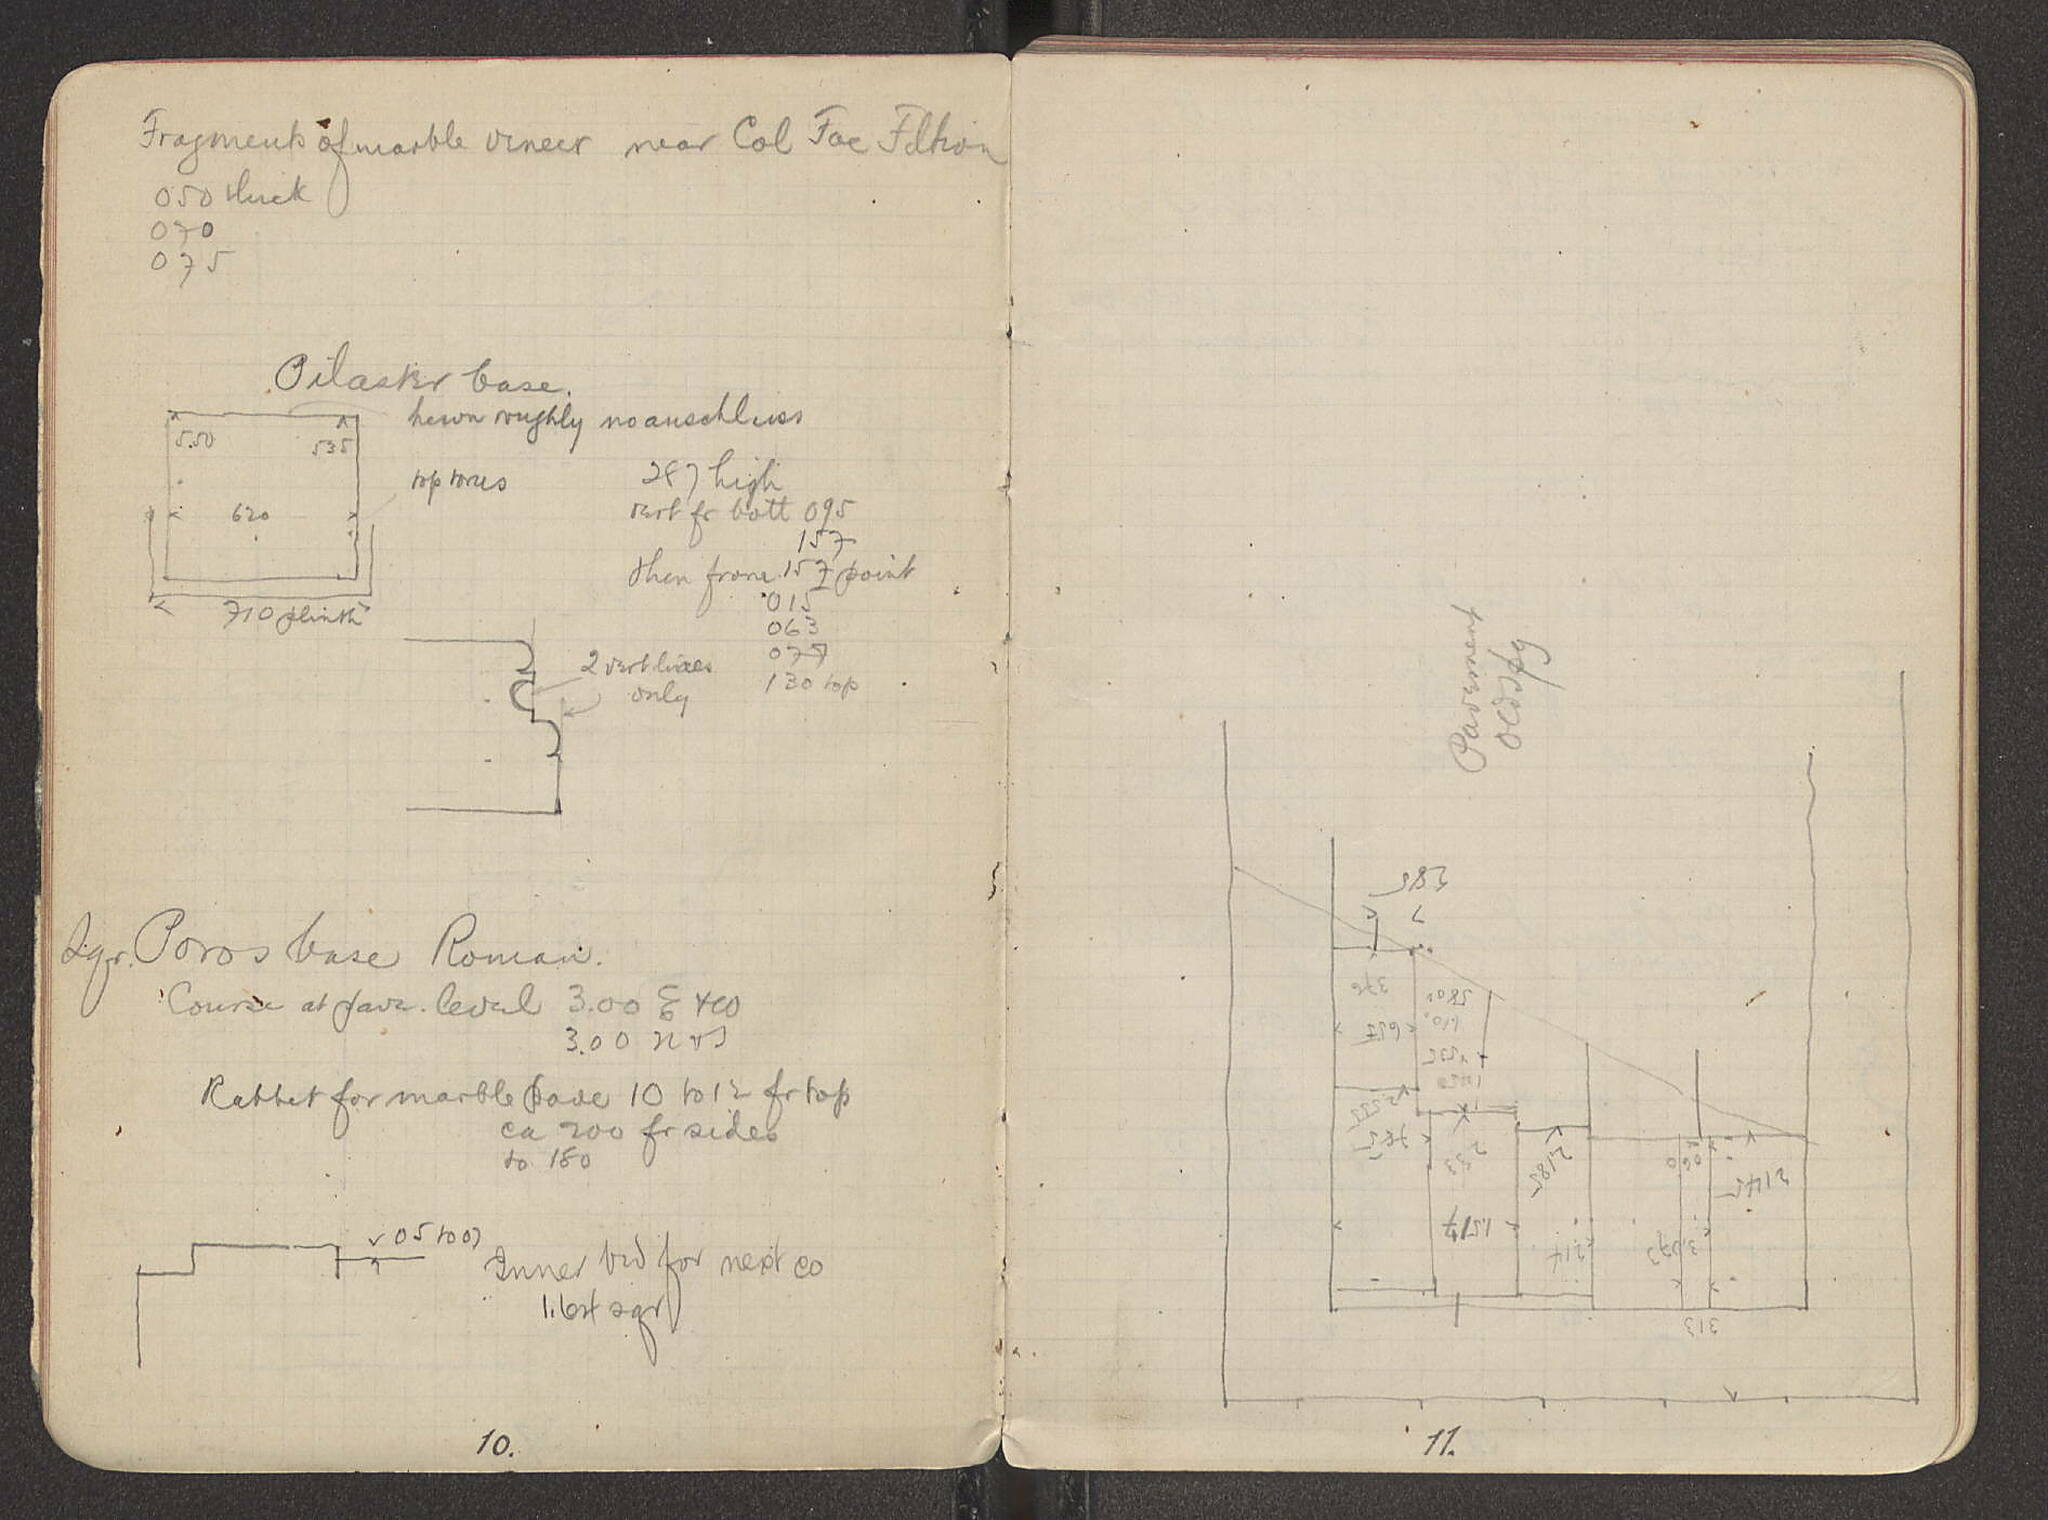 Fragments of marble veneer near Col Fac Fdtion
050 thick
070
075
Pilaster base.
hewn roughly no anschluss
5.50
535
top torus
620
710 plinth
287 high
vert fr bott 095
157
then from 157 point
015
063
075
130 top
2 vert lines
only
Sqr. Poros base Roman.
Course at pave. level 3.00 E &
3.00 N & S
Rabbet for marble pave 10 to 12 fr top
ca 200 fr sides
to 180
05 to 07
Inner bed for next co
1.64 sqr
10.
Pavement
Old Spg
385
376
657
580
785
1.517
2.185
214
060
2145
3.073
313
11.